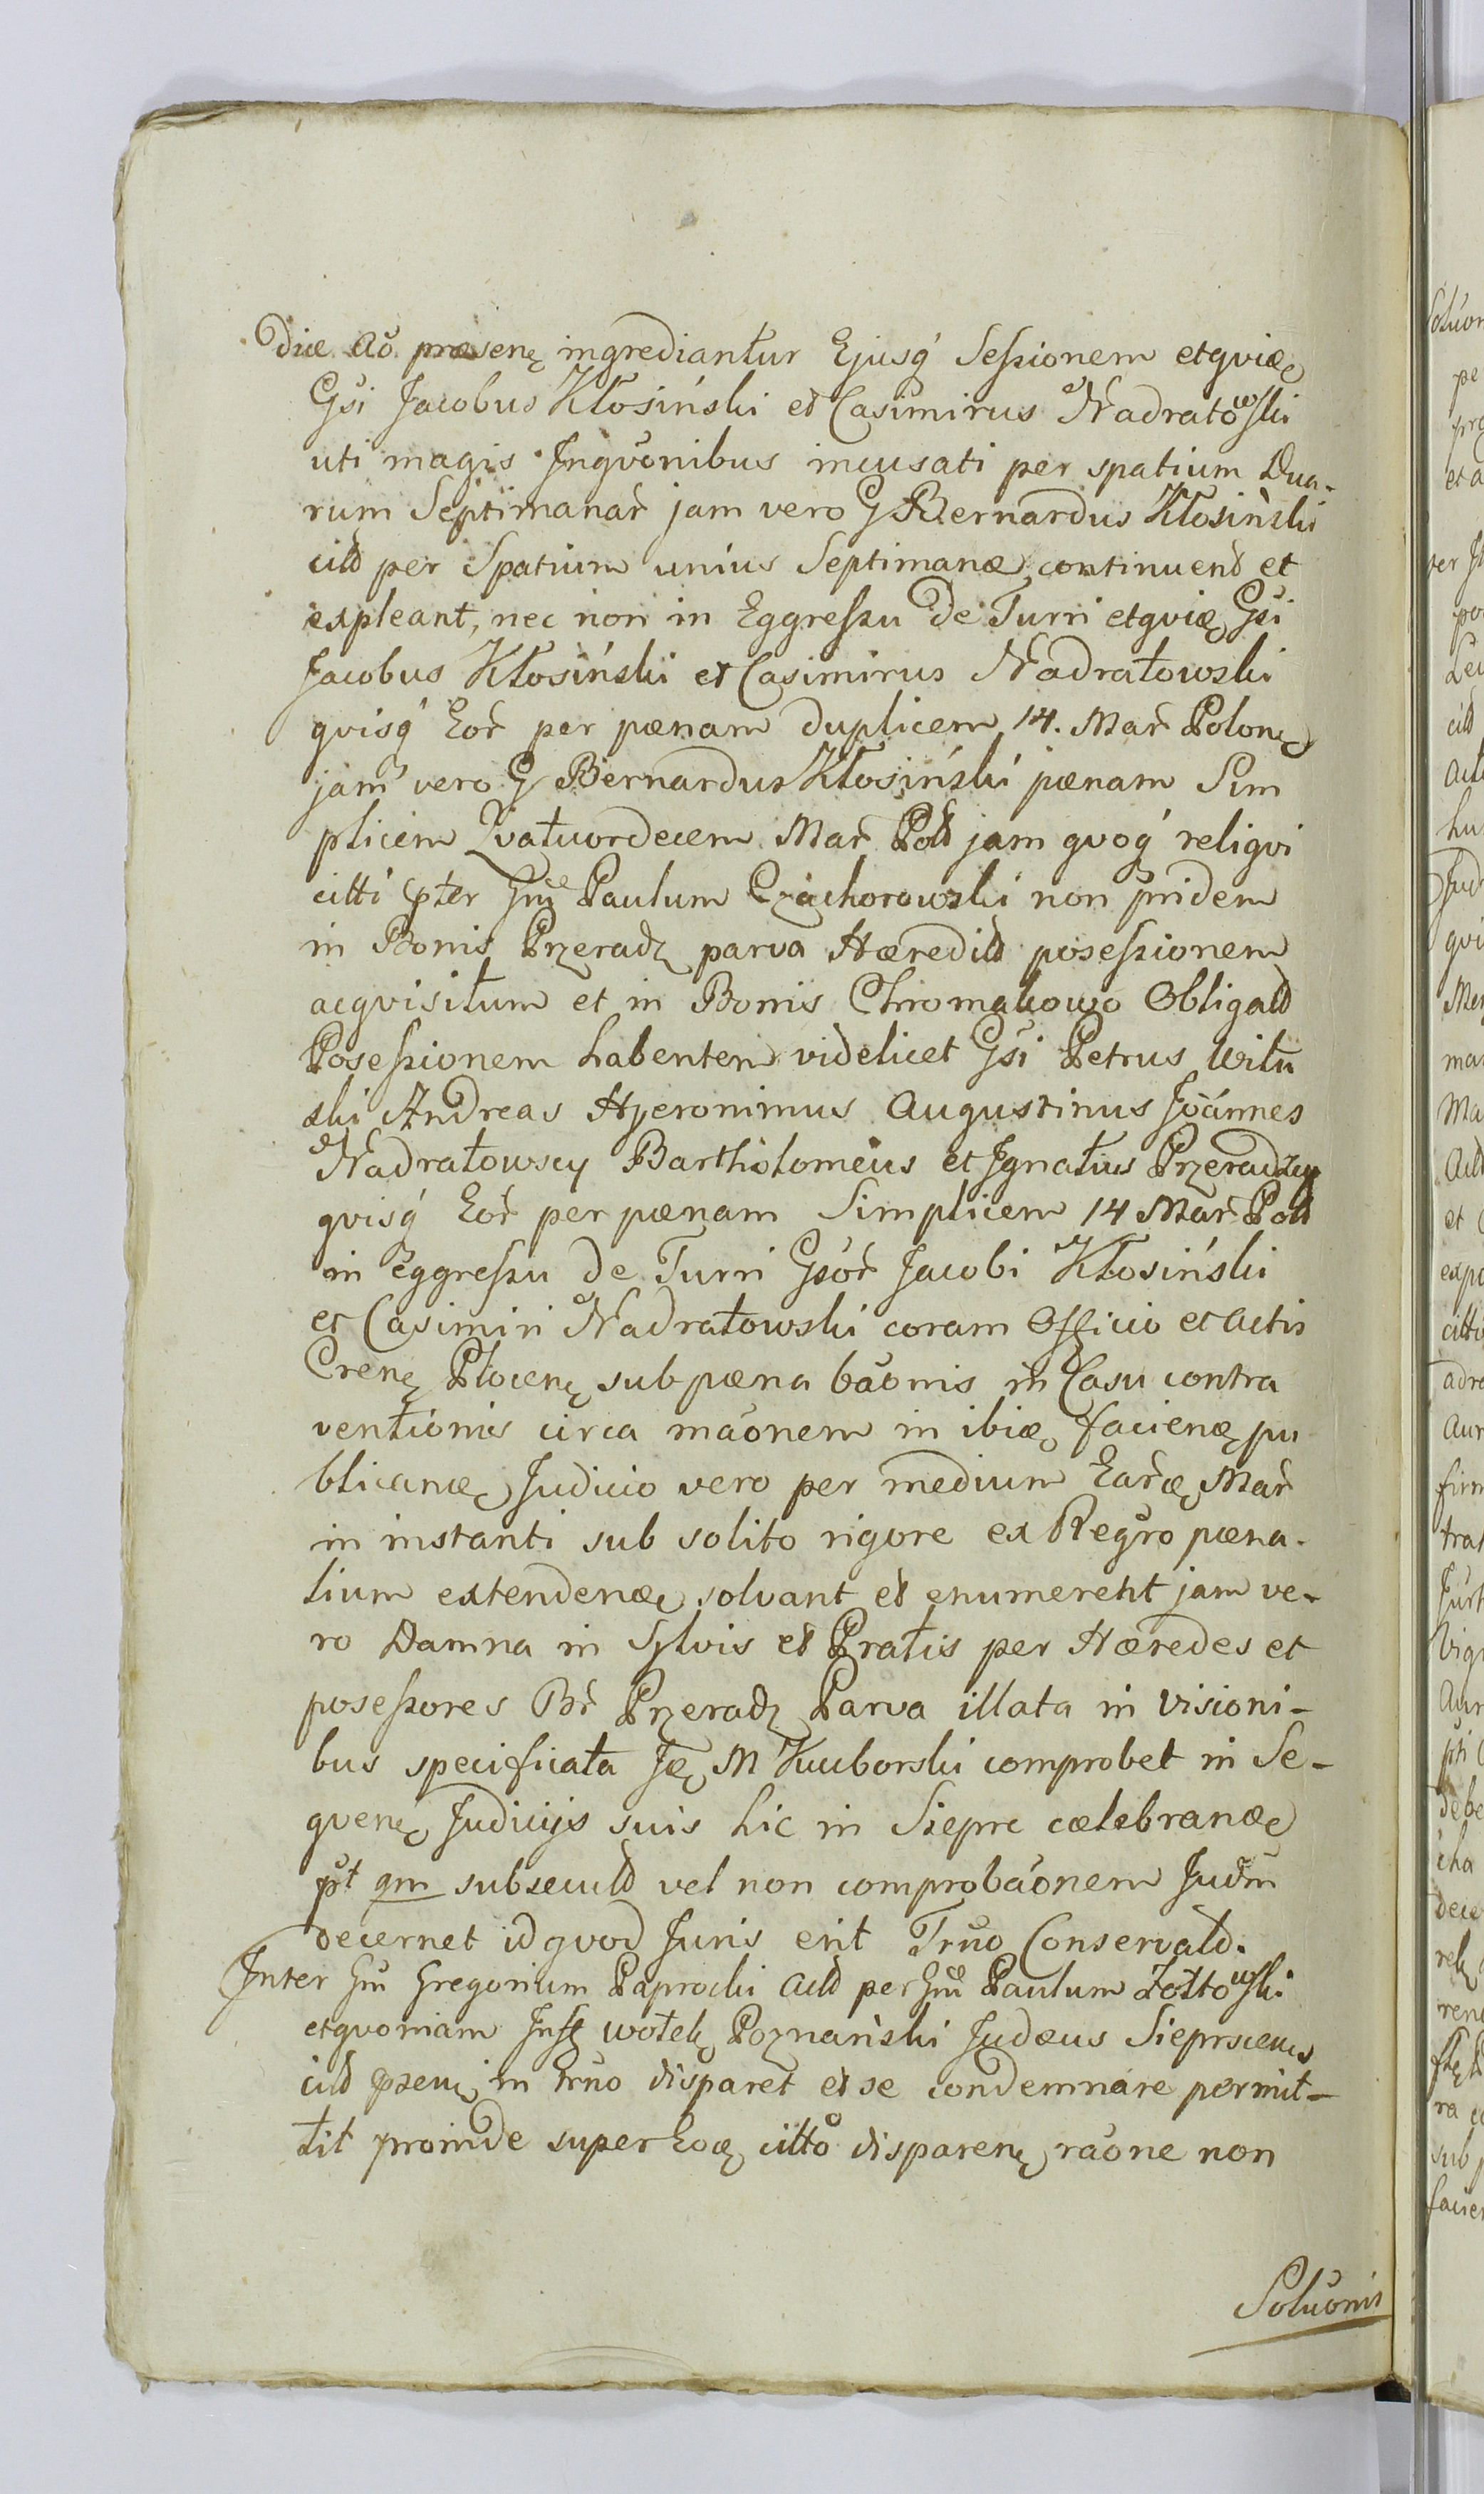 diæ Aō præsenꝫ ingrediantur Ejusq́ Sessionem etqviæꝫ
Gsi Jacobus Kłosiński et Casimirus Nadratowski
uti magis Inqvōnibus incusati per spatium Dua-
rum Septimanar̃ jam vero G Bernardus Kłosiński
citt̃ per Spatium unius Septimanæ continuent et
expleant, nec non in Eggressu de Turri etqviæꝫ Gsi
Jacobus Kłosiński et Casimirus Nadratowski
qvisq́ Eor̃ per pænam duplicem 14. Mar̃ Polonꝫ
jam vero G Bernardus Kłosiński pænam Sim
plicem Qvatuordecem Mar̃ Pold jam qvoq́ reliqvi
citti pter Gm̃ Paulum Czachorowski non pridem
in Bonis Przeradz parva Hæredild posessionem
acqvisitum et in Bonis Chromakowo Obligald
Posessionem habentem videlicet Gsi Petrus Witu
ski Andreas Hyeronimus Augustinus Joannes
Nadratowscy Bartholomeus et Ignatius Przeradzcy
qvisq́ Eor̃ per pænam Simplicem 14 Mar̃ Pold
in Eggressu de Turri Gsor̃ Jacobi Kłosiński
et Casimiri Nadratowski coram Officio et Actis
Crenꝫ Plocenꝫ sub pæna bāonis in Casu contra
ventionis circa māonem in ibiæꝫ facienꝫ pu
blicanæꝫ Judicio vero per medium Ear̃æꝫ Mar̃
in instanti sub solito rigore ex Regr̃o pæna-
lium extendenæꝫ solvant et enumerent jam ve-
ro Damna in Sylvis et Pratis per Hæredes et
posessores Br̃ Przeradz Parva illata in visioni-
bus specificata Jꝫ M Kucborski comprobet in Se-
qvenꝫ Judicijs suis hic in Sieprc cælebranæꝫ
pt̃ qm subseculd vel non comprobāonem Judm̃
decernet id qvod Juris erit Tr̃no Conservald.
Inter Gm̃ Gregorium Paprocki Actd per Gm̃ Paulum Żołtowski
etqvoniam Infꝫ Wołek Poznański Judæus Sieprscenꝫ
citd pzenꝫ in tr̃no disparet et se condemnare permit-
tit proinde super Eoæꝫ citto disparenꝫ rāone non
Solūonis